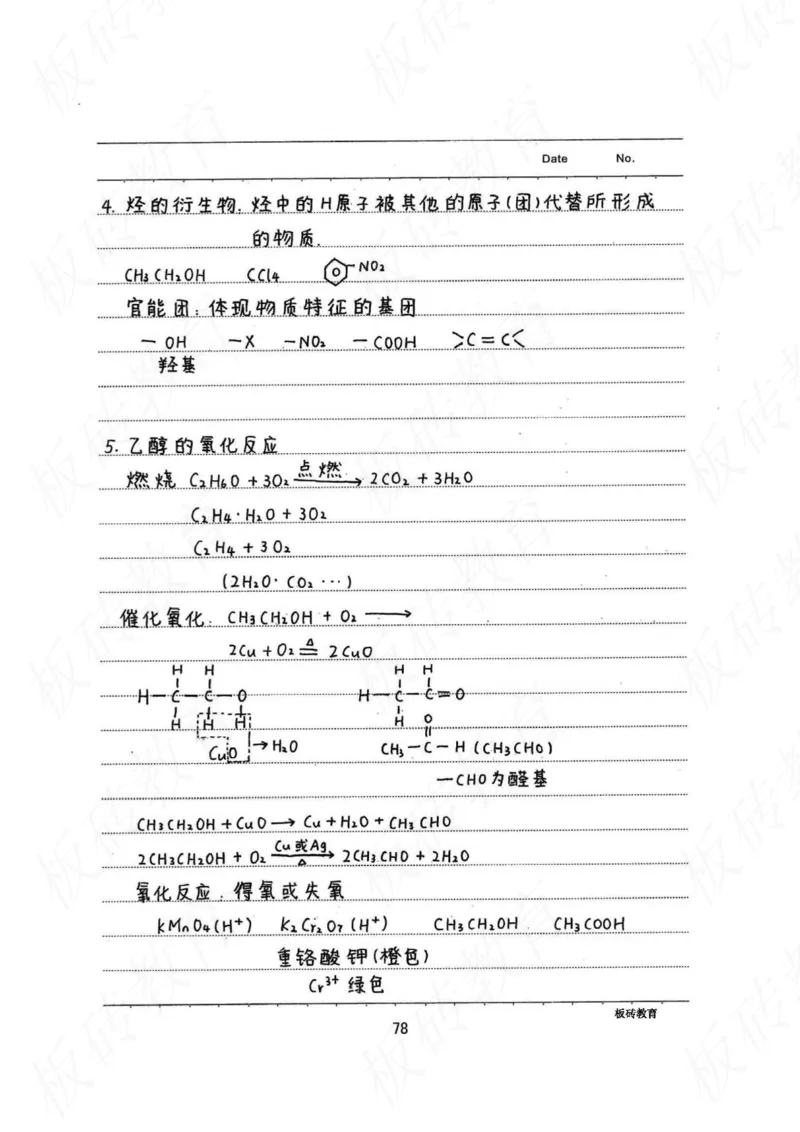 Date No.
4. 烃的衍生物. 烃中的H原子被其他的原子(团)代替所形成
的物质.
CH₃CH₂OH CCl₄ NO₂
官能团: 体现物质特征的基团
—OH —X —NO₂ —COOH >C=C<
羟基
5. 乙醇的氧化反应
燃烧 C₂H₆O + 3O₂ 点燃→ 2CO₂ + 3H₂O
C₂H₄·H₂O + 3O₂
C₂H₄ + 3O₂
(2H₂O·CO₂ ···)
催化氧化. CH₃CH₂OH + O₂ →
2Cu + O₂ ≜ 2CuO
H H H H
H—C—C—O H—C—C=O
H H H H O
CuO → H₂O CH₃—C—H (CH₃CHO)
—CHO为醛基
CH₃CH₂OH + CuO → Cu + H₂O + CH₃CHO
2CH₃CH₂OH + O₂ Cu或Ag→△ 2CH₃CHO + 2H₂O
氧化反应. 得氧或失氧
KMnO₄(H⁺) K₂Cr₂O₇(H⁺) CH₃CH₂OH CH₃COOH
重铬酸钾(橙色)
Cr³⁺ 绿色
板砖教育
78